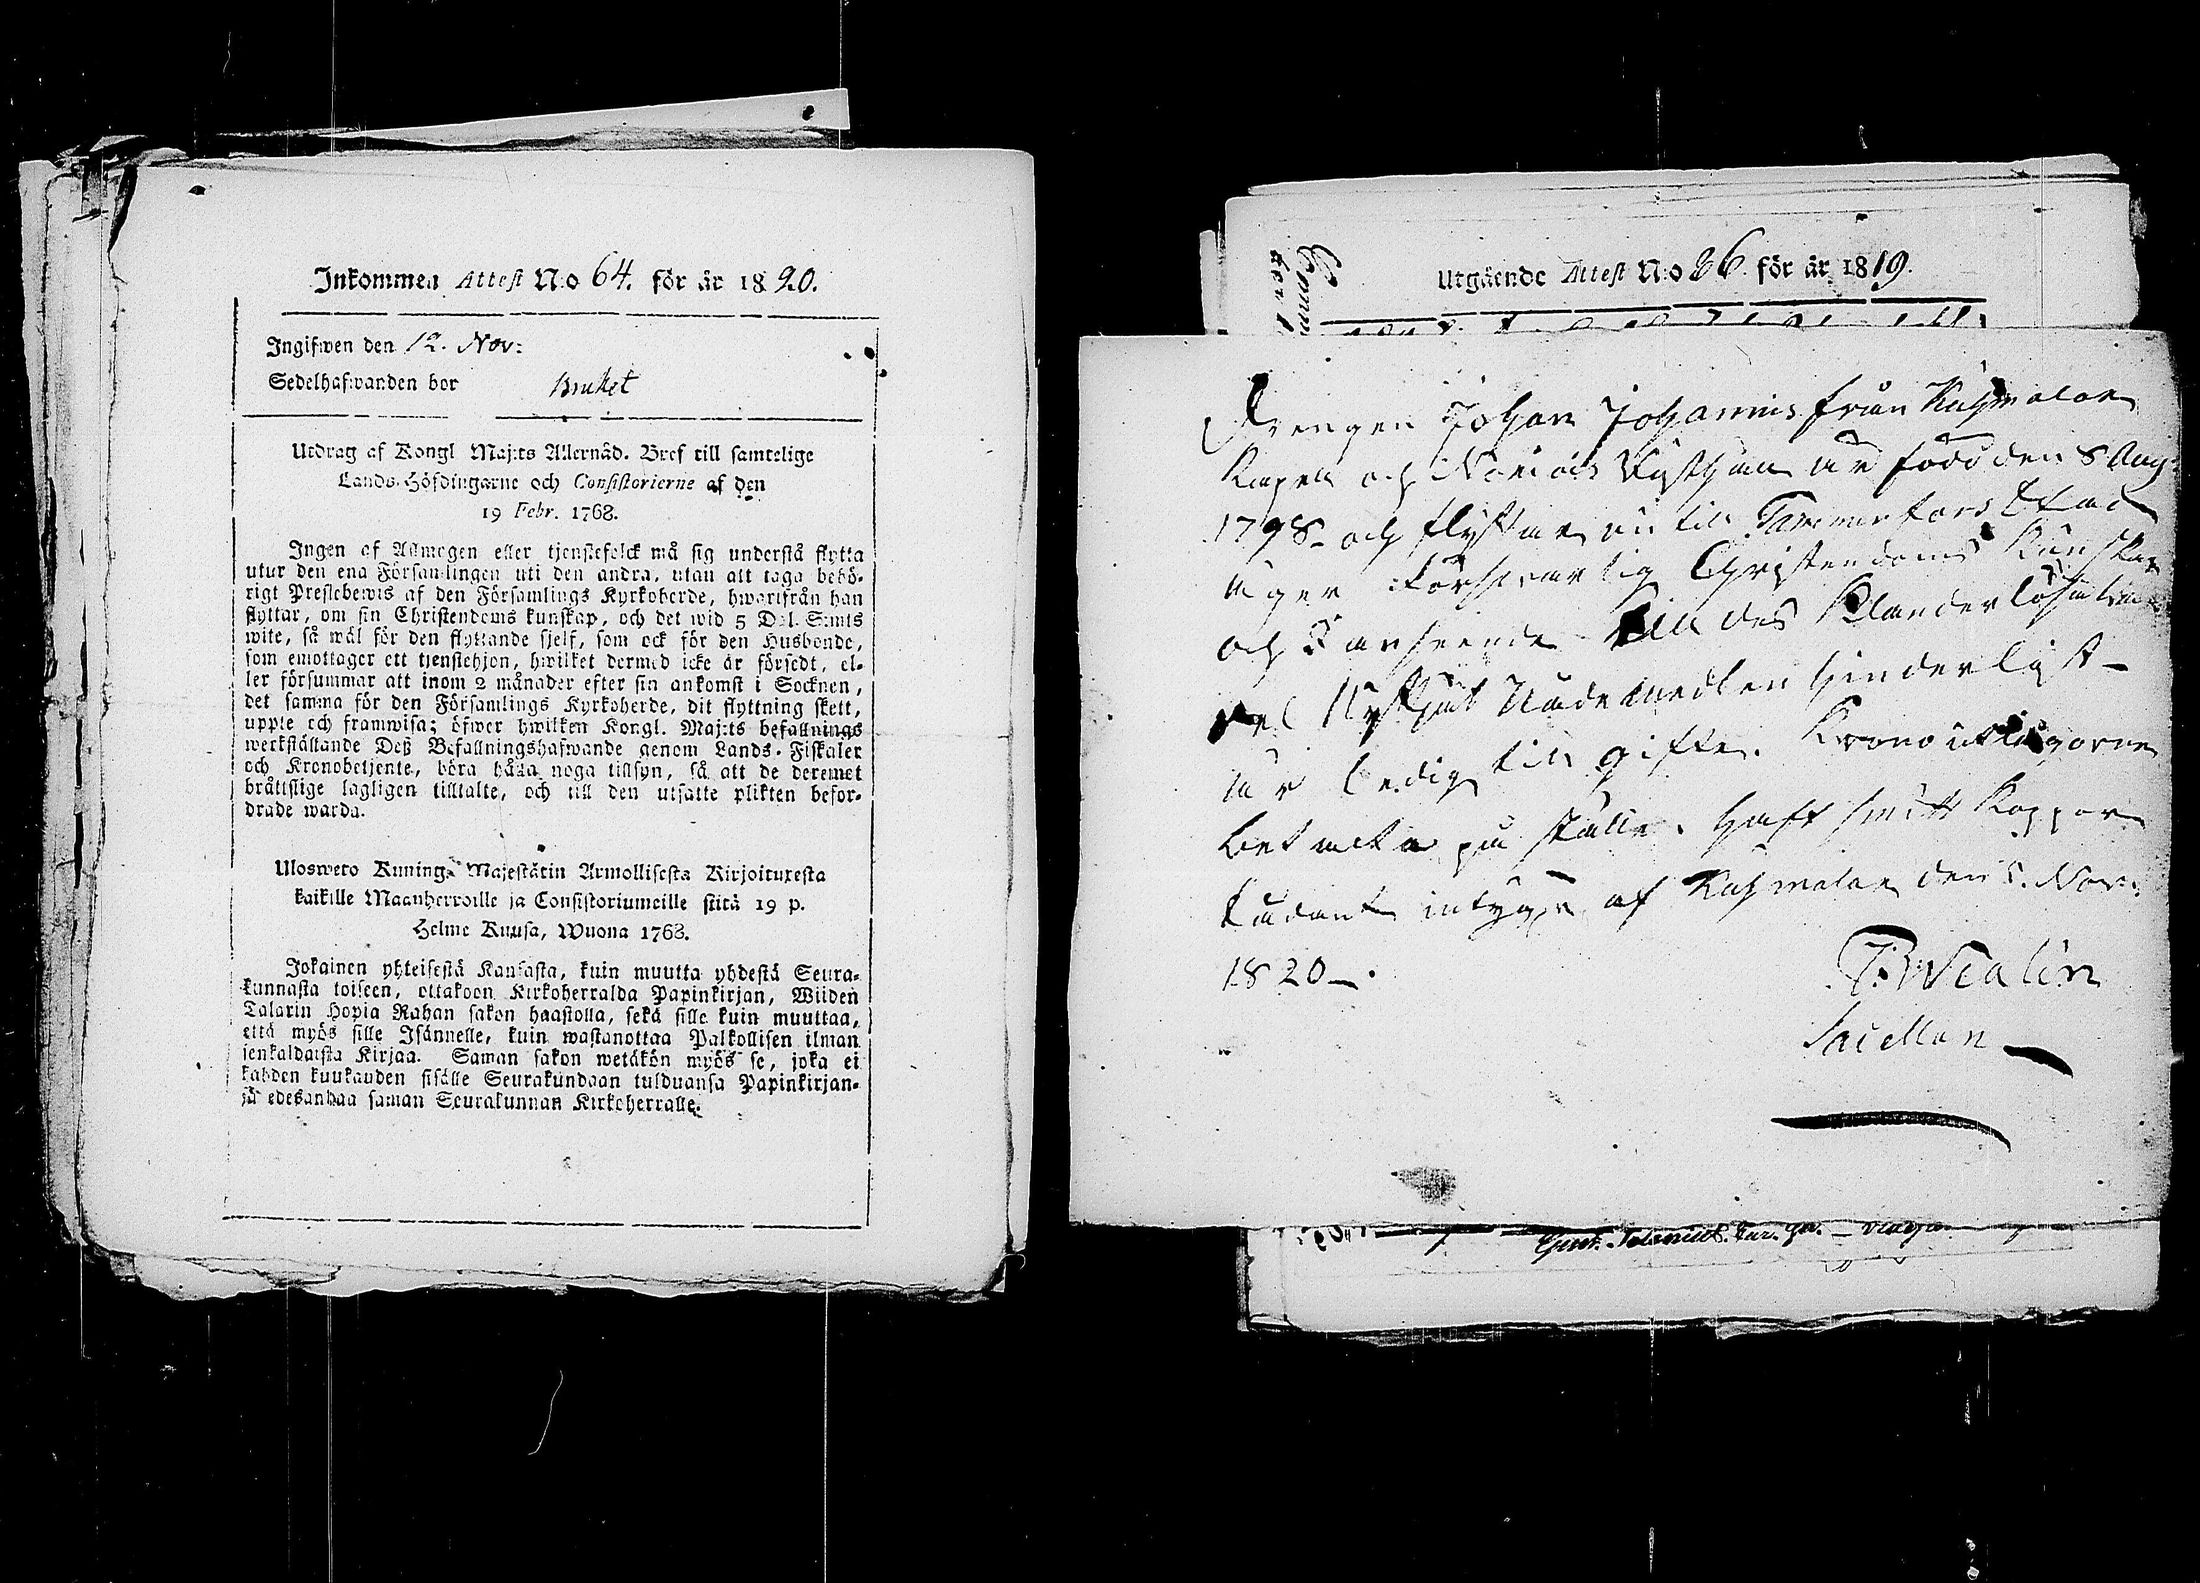 Inkommen Attest N:o 64. för år 1820.
Ingifwen den 12. Nov:
Sedelhafwanden bor Bruket
Utdrag af Kongl Maj:ts Allernåd. Bref till samtelige
Lands-Höfdingarne och Consistorierne af den
19 Febr. 1768.
Ingen af Allmogen eller tjenstefolck må sig understå flytta
utur den ena Församlingen uti den andra, utan att taga behö-
rigt Prestebewis af den Församlings Kyrkoherde, hwarifrån han
flyttar, om sin Christendoms kunskap, och det wid 5 Dal. S:mts
wite, så wäl för den flyttande sjelf, som ock för den Husbonde,
som emottager ett tjenstehjon, hwilket dermed icke är försedt, el-
ler försummar att inom 2 månader efter sin ankomst i Socknen,
det samma för den Församlings Kyrkoherde, dit flyttning skett,
uppte och framwisa; öfwer hwilken Kongl. Maj:ts befallnings
werkställande Deß Befallningshafwande genom Lands-Fiskaler
och Kronobetjente, böra hålla noga tillsyn, så att de deremot
bråttslige lagligen tilltalte, och till den utsatte plikten befor-
drade warda.
Ulosweto Kuning. Majestätin Armollisesta Kirjoituxesta
kaikille Maanherroille ja Consistoriumeille siitä 19 p.
Helme Kuusa, Wuona 1768.
Jokainen yhteisestä Kansasta, kuin muutta yhdestä Seura-
kunnasta toiseen, ottakoon Kirkoherralda Papinkirjan, Wiiden
Talarin Hopia Rahan sakon haastolla, sekä sille kuin muuttaa,
että myös sille Isännelle, kuin wastanottaa Palkollisen ilman
senkaldaista Kirjaa. Saman sakon wetäkön myös se, joka ei
kahden kuukauden sisälle Seurakundaan tulduansa Papinkirjan-
sa edesandaa saman Seurakunnan Kirkoherralle.
Utgående Attest N:o 36 för år 1819.
Drengen Johan Johannis från Kuhmalax
Kapell och är född den 8 Aug:
1798 och flyttar nu till Tammerfors Stad
äger försvarlig Christendoms Kunskap
och i anseende till des
Nade Medlen hinderligt
är ledig till gifte. Kronoutlagorne
betalta på ställe. Haft Koppor
intygar af Kuhmalax den 5. Nov:
1820.
Wealin
Sacellan